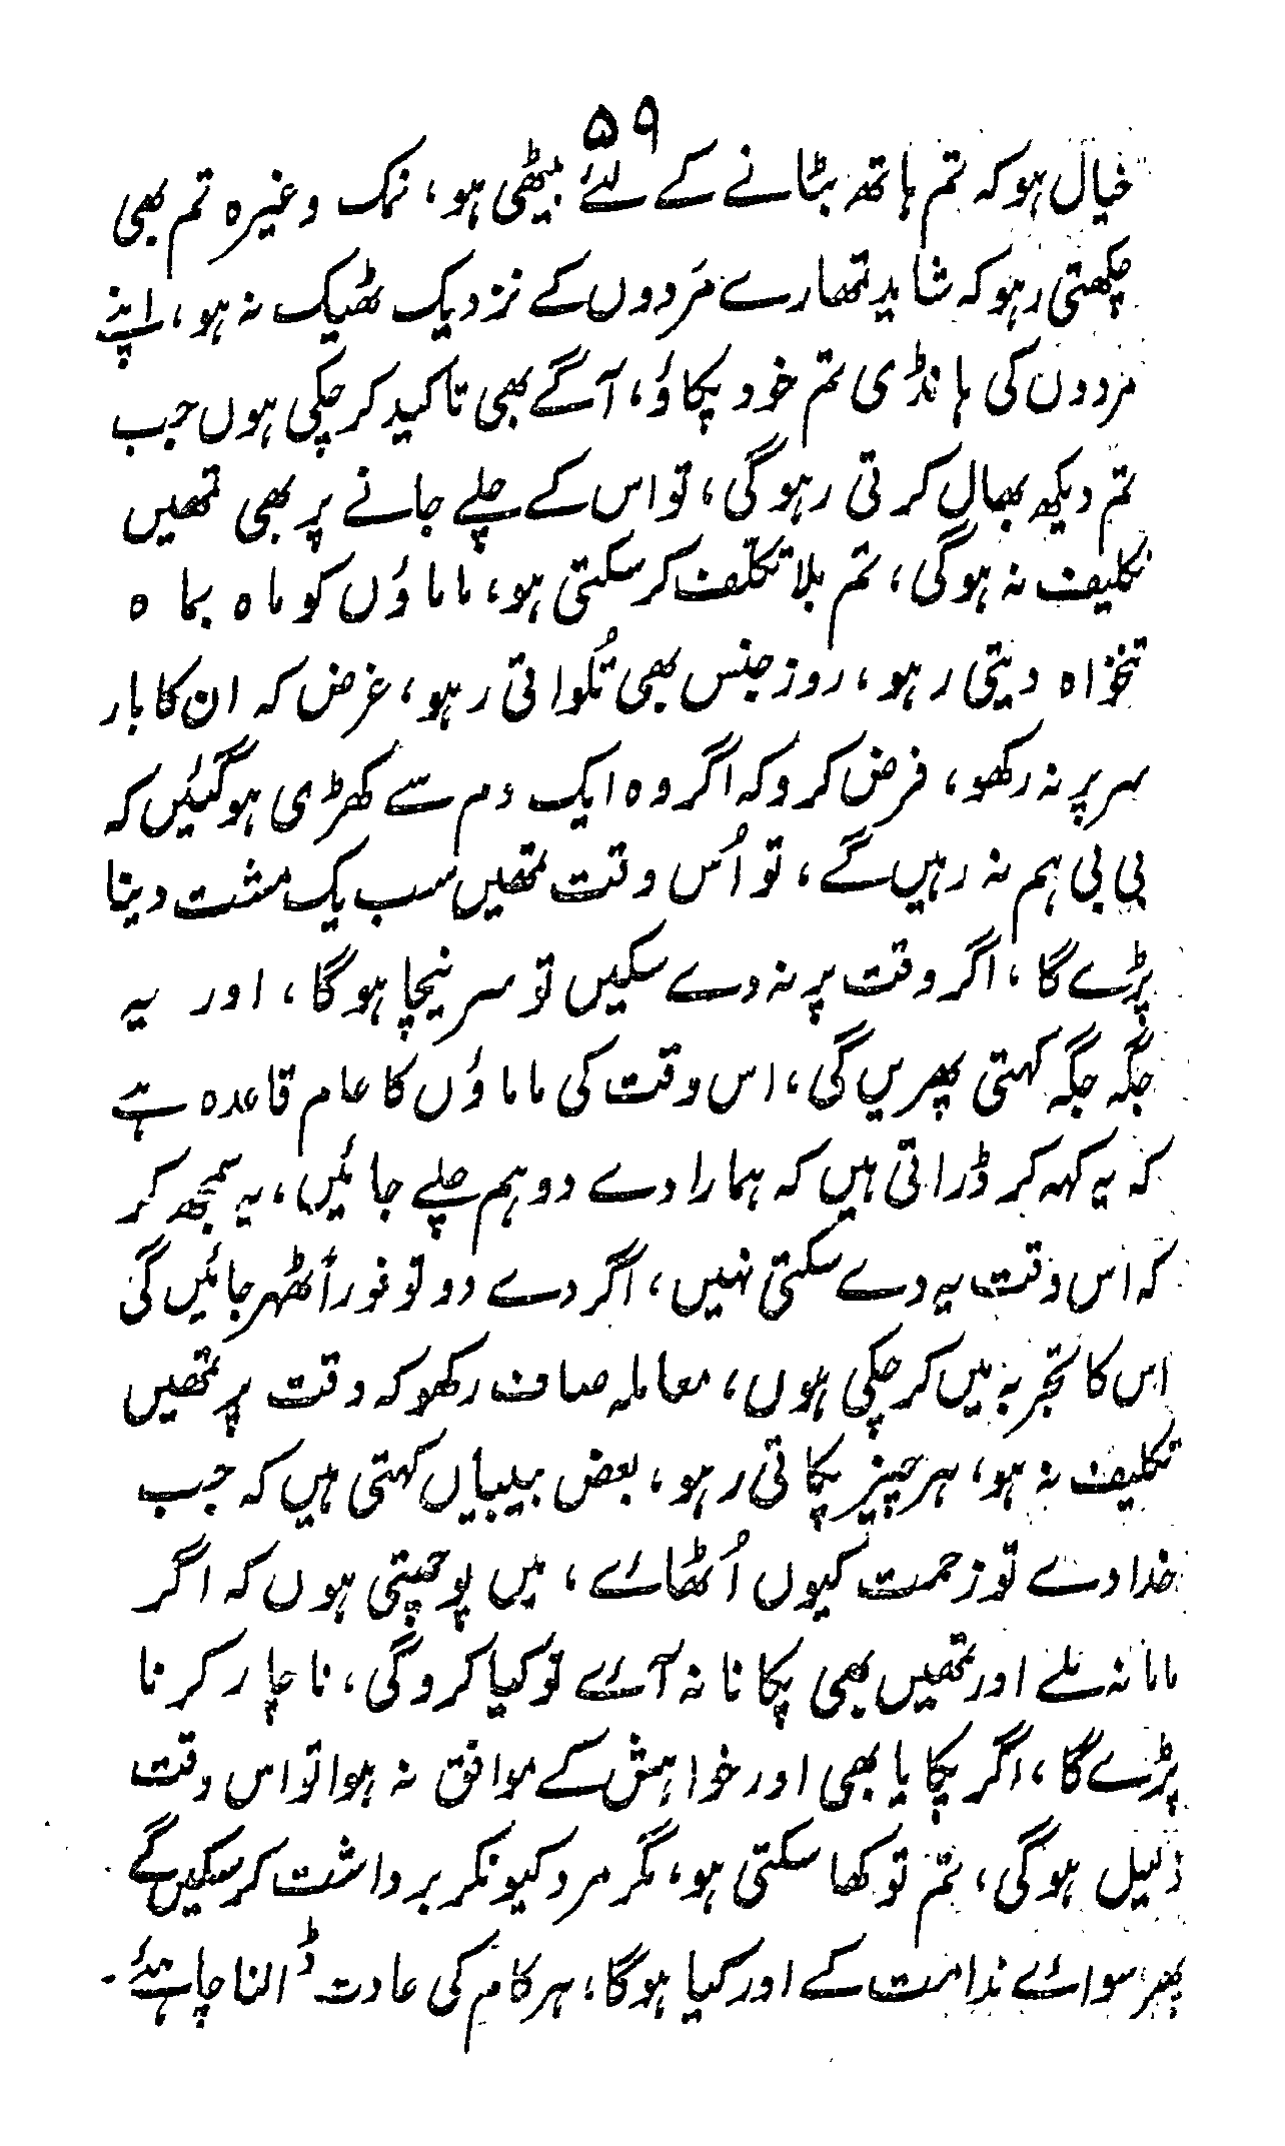 ۵۹
خیال ہو کہ تم ہاتھ بٹانے کے لئے بیٹھی ہو، نمک وغیرہ تم بھی
چکھتی رہو کہ شاید تمھارے مَردوں کے نزدیک ٹھیک نہ ہو، اپنے
مردوں کی ہانڈی تم خود پکاؤ، آگے بھی تاکید کر چکی ہوں جب
تم دیکھ بھال کرتی رہو گی، تو اس کے چلے جانے پر بھی تمھیں
تکلیف نہ ہو گی، تم بلا تکلف کر سکتی ہو، ماماؤں کو ماہ بماہ
تنخواہ دیتی رہو، روز جنس بھی تُلواتی رہو، غرض کہ ان کا بار
سر پر نہ رکھو، فرض کرو کہ اگر وہ ایک دم سے کھڑی ہو گئیں کہ
بی بی ہم نہ رہیں گے، تو اُس وقت تمھیں سب یک مشت دینا
پڑے گا، اگر وقت پر نہ دے سکیں تو سر نیچا ہو گا، اور یہ
جگہ جگہ کہتی پھریں گی، اس وقت کی ماماؤں کا عام قاعدہ ہے
کہ یہ کہہ کر ڈراتی ہیں کہ ہمارا دے دو ہم چلے جائیں، یہ سمجھ کر
کہ اس وقت یہ دے سکتی نہیں، اگر دے دو تو فوراً ٹھہر جائیں گی
اس کا تجربہ میں کر چکی ہوں، معاملہ صاف رکھو کہ وقت پر تمھیں
تکلیف نہ ہو، ہر چیز پکاتی رہو، بعض بیبیاں کہتی ہیں کہ جب
خدا دے تو زحمت کیوں اُٹھائے، میں پوچھتی ہوں کہ اگر
ماما نہ ملے اور تمھیں بھی پکانا نہ آئے تو کیا کرو گی، ناچار کرنا
پڑے گا، اگر پکایا بھی اور خواہش کے موافق نہ ہوا تو اس وقت
ذلیل ہو گی، تم تو کھا سکتی ہو، مگر مرد کیونکر برداشت کر سکیں گے
پھر سوائے ندامت کے اور کیا ہو گا، ہر کام کی عادت ڈالنا چاہئے۔